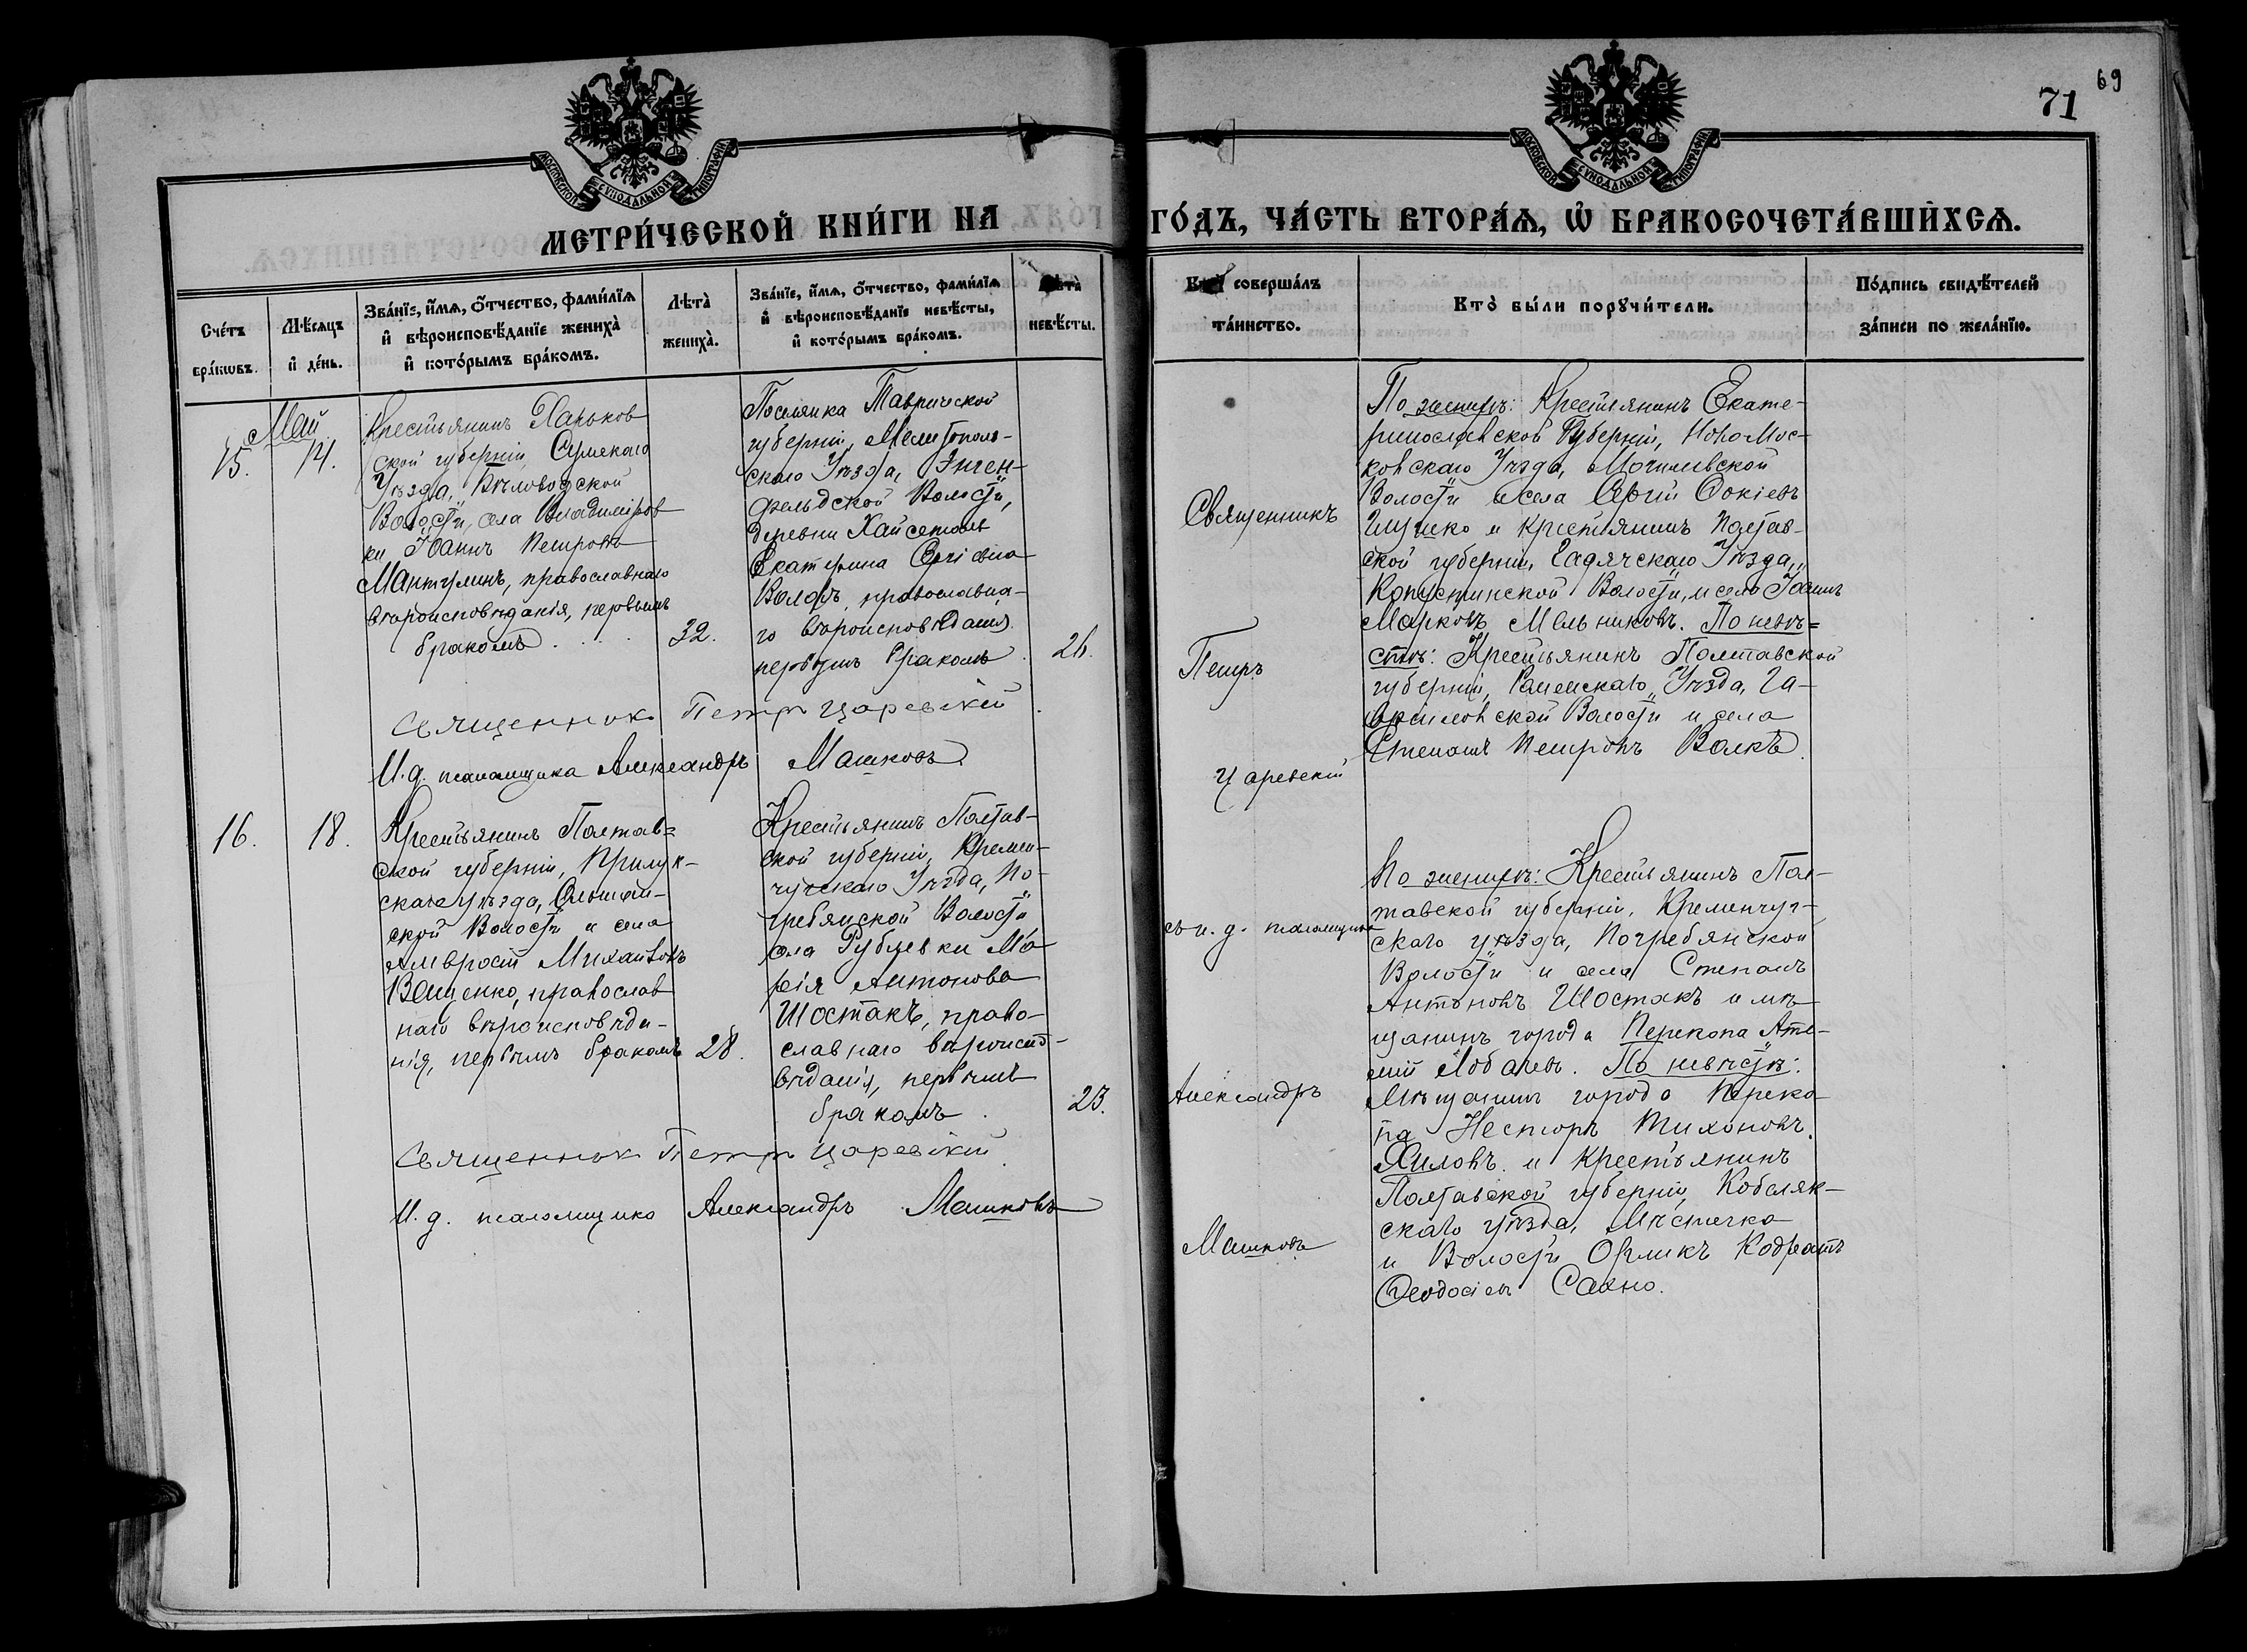 69
71
МОСКОВСКОЙ СѴНОДАЛЬНОЙ ТИПОГРАФІИ
МОСКОВСКОЙ СѴНОДАЛЬНОЙ ТИПОГРАФІИ
МЕТРИ́ЧЕСКОЙ КНИ́ГИ НА
ГО́ДЪ, ЧА́СТЬ ВТОРА́Ѧ, Ѽ БРАКОСОЧЕТА́ВШИХСѦ.
Сче́тъ
бра́кωвъ.
Мѣ́сяцъ
и де́нь.
Зва́нїе, и́мѧ, ѻ́тчество, фами́лїѧ
и҆ вѣроисповѣ́данїе жениха̀
и҆ кото́рымъ бра́комъ.
Лѣта̀
жениха̀.
Зва́нїе, и́мѧ, ѻ́тчество, фами́лїѧ
и҆ вѣроисповѣ́данїе невѣ́сты,
и҆ кото́рымъ бра́комъ.
Лѣта̀
невѣ́сты.
Кто̀ соверша́лъ
та́инство.
Кто̀ бы́ли порꙋчи́тели.
По́дпись свидѣ́телей
за́писи по жела́нїю.
Май
15.
14.
Крестьянинъ Харьков
ской губерніи, Сумскаго
Уѣзда, Бѣловодской
Волости, села Владиміров
ки Іоаннъ Петровъ
Мантулинъ, православнаго
вѣроисповѣданія, первымъ
бракомъ
32.
Поселянка Таврической
губерніи, Мелитополь-
скаго Уѣзда, Эйген-
фельдской Волости,
деревни
Екатерина Сергіева
православна-
го вѣроисповѣданія
первымъ бракомъ
26.
Священникъ Петръ Царевскій
И. д. псаломщика Александръ Машковъ
Священникъ
Петръ
Царевскій
По женихѣ: Крестьянинъ Екате-
ринославской Губерніи, Новомос-
ковскаго Уѣзда, Могилевской
Волости и села Сергій
и крестьянинъ Полтав-
ской губерніи, Гадячскаго Уѣзда,
Капустинской Волости, и села Іоаннъ
Марковъ Мельниковъ. По невѣ=
стѣ: Крестьянинъ Полтавской
губерніи, Роменскаго Уѣзда, Га-
вриловской Волости и села
Степанъ Петровъ Волкъ
16.
18.
Крестьянинъ Полтав=
ской губерніи, Прилук-
скаго уѣзда,
ской Волости и села
Амвросій Михайловъ
Ващенко, православ
наго вѣроисповѣда-
нія, первымъ бракомъ
28.
Крестьянинъ Полтав-
ской губерніи, Кремен-
чугскаго Уѣзда, По-
гребянской Волости
села Рублевки Ма-
рія Антонова
Шостакъ, право-
славнаго вѣроиспо-
вѣданія, первымъ
бракомъ
23.
Священникъ Петръ Царевскій
И. д. псаломщика Александръ Машковъ
съ и. д. псаломщика
Александръ
Машковъ
По женихѣ: Крестьянинъ Пол-
тавской губерніи, Кременчуг-
скаго уѣзда, Погребянской
Волости и села Степанъ
Антоновъ Шостакъ и мѣ-
щанинъ города Перекопа
Лобачевъ. По невѣстѣ:
Мѣщанинъ города Переко-
па Несторъ Тихоновъ
Хиловъ и крестьянинъ
Полтавской губерніи, Кобеляк-
скаго уѣзда, Мѣстечка
и Волости Орликъ Кодратъ
Ѳеодосіевъ